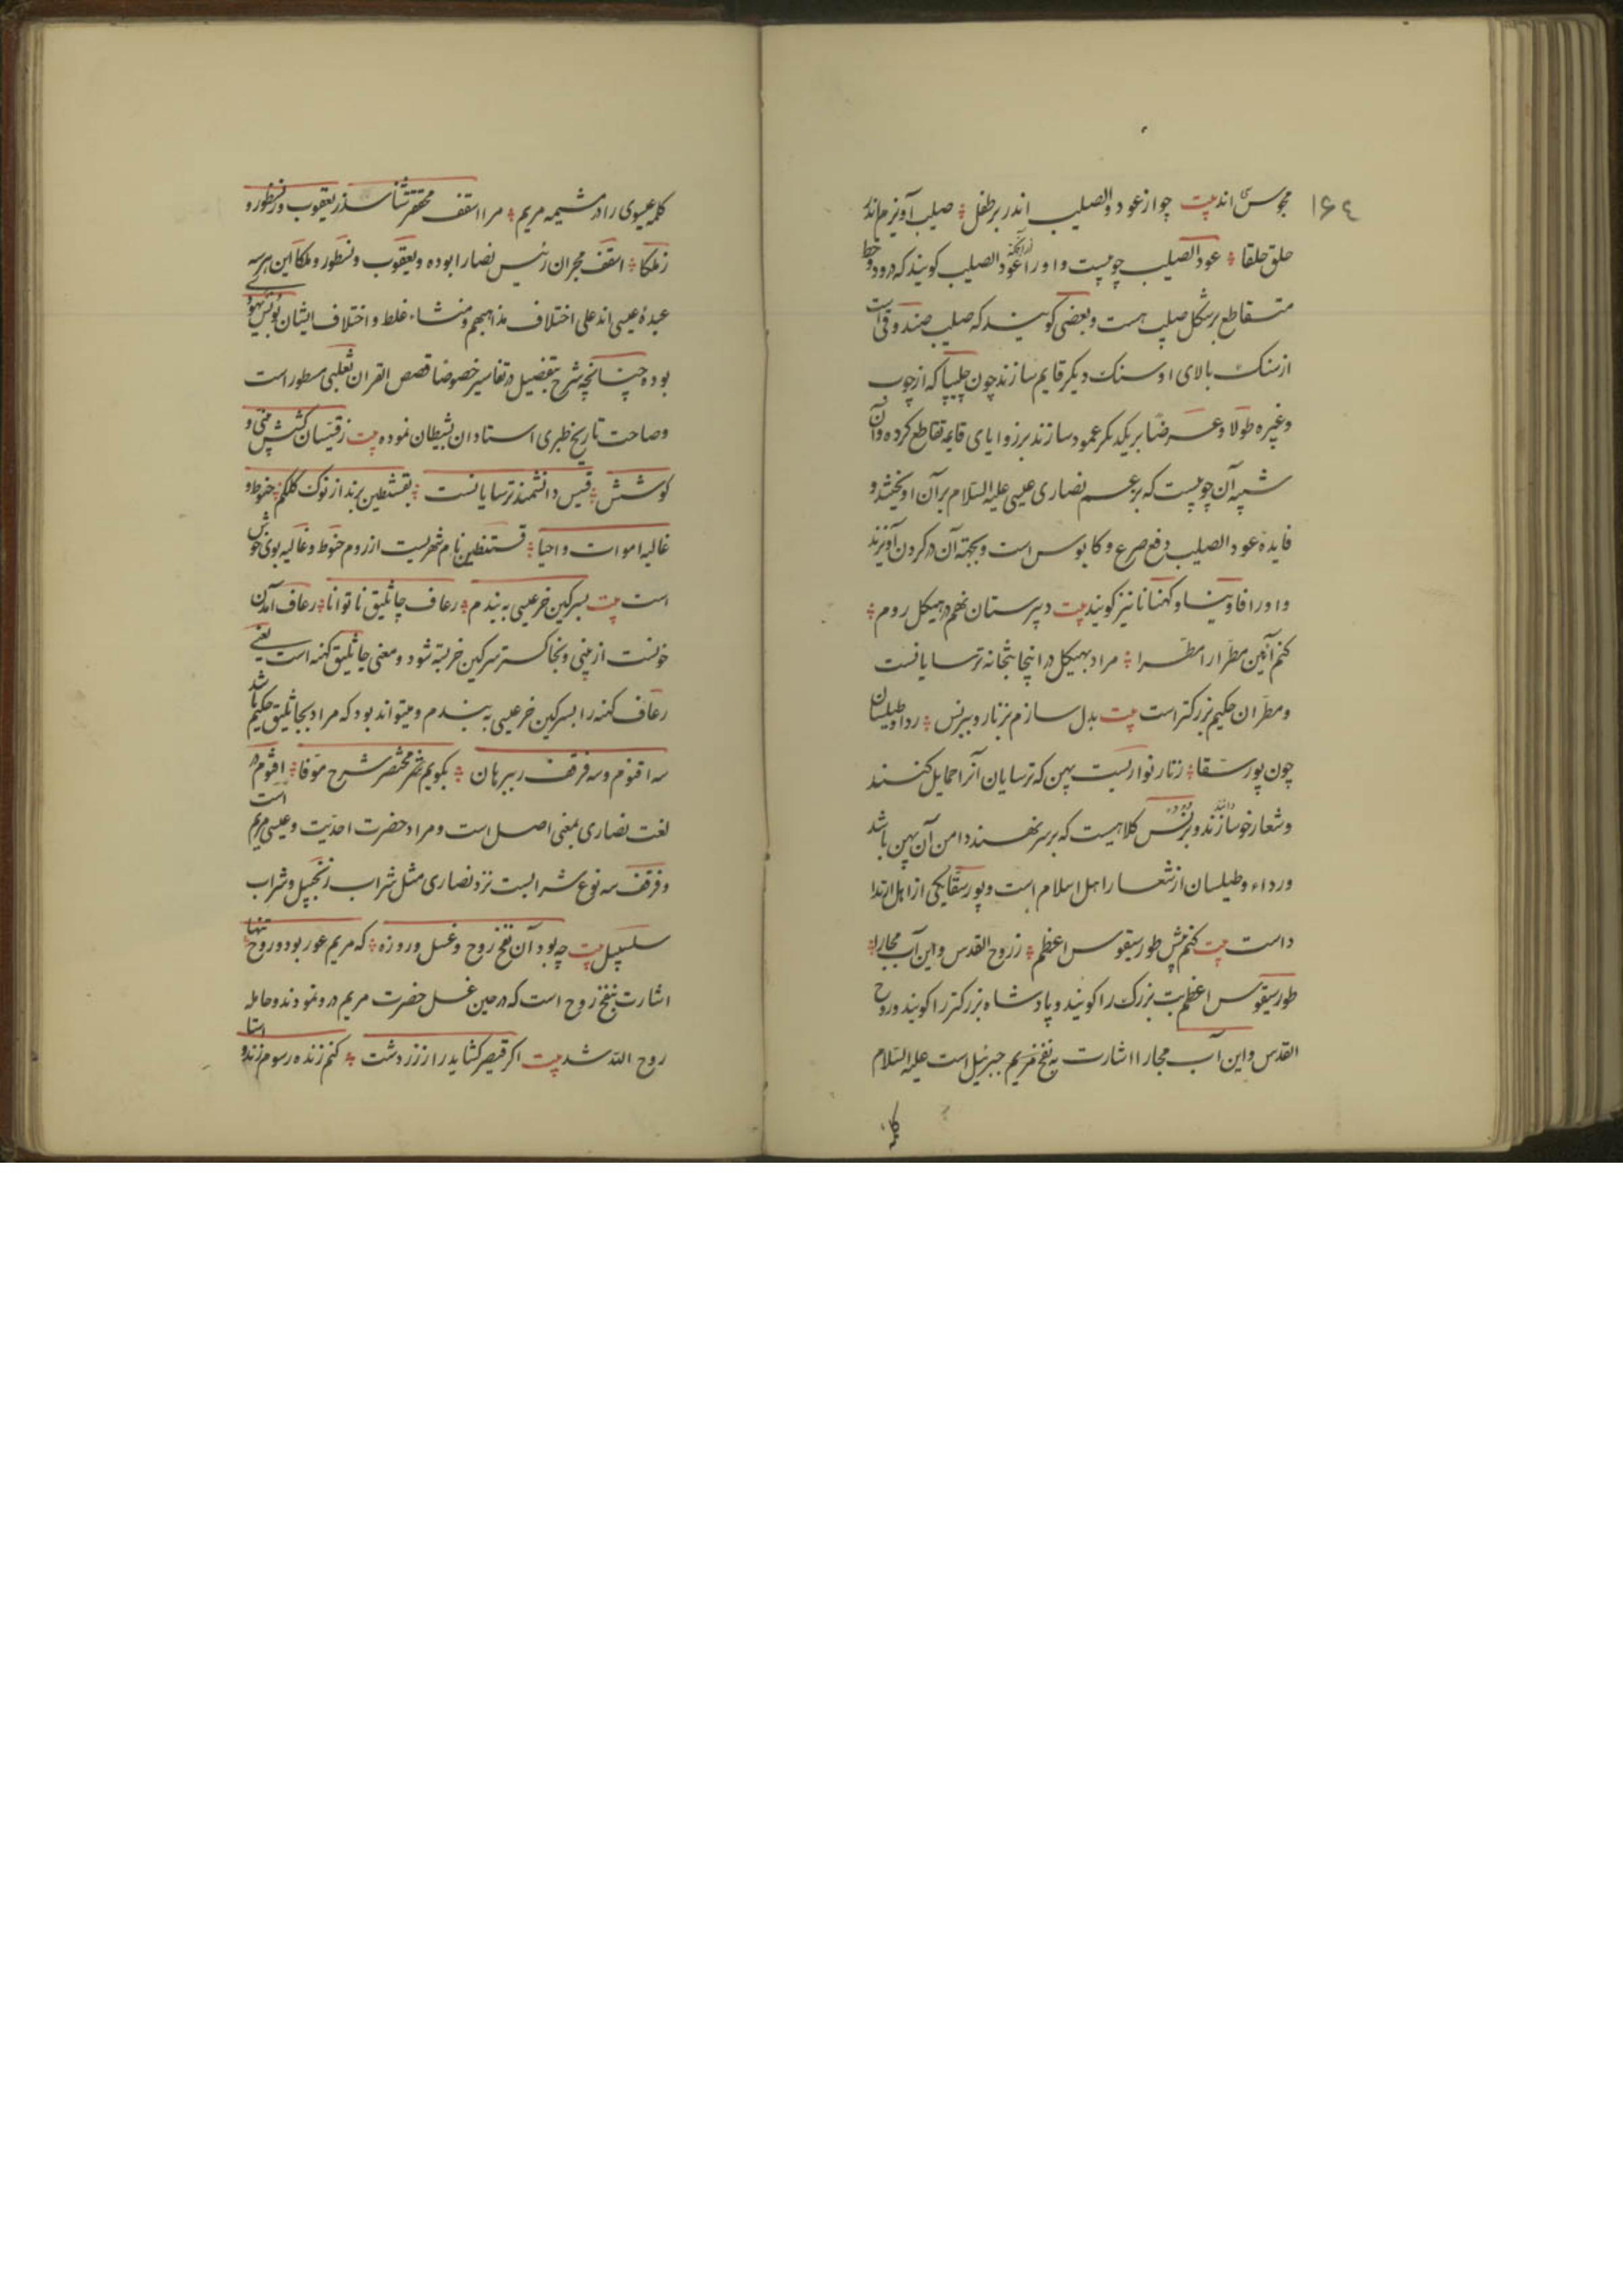 ۱۶٤
مجوس اند بیت چو از عود الصلیب اندر بر طفل صلیب آویزم اندر
حلق حلقا عود الصلیب چوبیست و او را ازآنکه عود الصلیب کویند که درو دو خط
متقاطع بر شکل صلیب هست و بعضی کویند که صلیب صندوقی است
از سنک بالای او سنک دیکر قایم سازند چون چلیپا که از چوب
وغیره طولا و عرضا بر یکدیکر عمود سازند بر زوایای قایمه تقاطع کرده و آن
شبیه آن چوبیست که بزعم نصاری عیسی علیه السلام بر آن اویختند و
فایدهٔ عود الصلیب دفع صرع و کابوس است و بجهته آن در کردن آویزند
و او را فاوینا و کهنانا نیز کویند بیت دبیرستان نهم در هیکل روم
کنم آیین مطران را مطرا مراد بهیکل در اینجا بتخانه ترسایانست
ومطران حکیم بزرکتر است بیت بدل سازم بزنار و ببرنس ردا و طیلسان
چون پور سقا زنار نواریست پهن که ترسایان آنرا حمایل کنند
وشعار خود سازند و برنس کلاهیست که بر سر نهند دامن آن پهن باشد
ورداء وطیلسان از شعار اهل اسلام است و پور سقا یکی از اهل ارتدا
داست بیت کنم پیش طورسیقوس اعظم ز روح القدس و ابن آب مجارا
طورسیقوس اعظم بت بزرک را کویند و پادشاه بزرکتر را کویند و روح
القدس و ابن آب مجارا اشارت به نفخ مریم جبرئیل است علیه السلام
کلمه
کلمه عیسوی را در مشیمه مریم مرا اسقف محققتر شناسد ز یعقوب و ز نسطور و
ز ملکا اسقف نجران رئیس نصارا بوده و یعقوب و نسطور و ملکا این هر سه
عبدهٔ عیسی اند علی اختلاف مذاهبهم و منشاء غلط و اختلاف ایشان بولس یهود
بوده چنانچه شرح بتفصیل در تفاسیر خصوصا قصص القران ثعلبی مسطور است
وصاحب تاریخ طبری استادان بشیطان نموده بیت ز قسیسان کشیش منی و
کوشش قسیس دانشمند ترسایانست بقسطنطین برند از نوک کلکم حنوط و
غالیه اموات و احیا قسطنطین نام شهریست از روم حنوط و غالیه بوی خوش
است بیت بسرکین خر عیسی به بندم رعاف جاثلیق ناتوانا رعاف آمدن
خونست از بینی و بخاکستر سرکین خر بسته شود و معنی جاثلیق کهنه است یعنی
رعاف کهنه را بسرکین خر عیسی به بندم و میتواند بود که مراد بجاثلیق حکیم باشد
سه اقنوم و سه فرقف ببرهان بکویم مختصر شرح موفا اقنوم در
لغت نصاری بمعنی اصل است و مراد حضرت احدیت و عیسی مریم است
و فرقف سه نوع شرابست نزد نصاری مثل شراب زنجبیل و شراب
سلسبیل بیت چه بود آن نفخ روح و غسل و روزه که مریم عور بود و روح تنها
اشارت بنفخ روح است که در حین غسل حضرت مریم درو نمودند و حامله
روح الله شد بیت اکر قیصر کشاید راز زردشت کنم زنده رسوم زند و استا